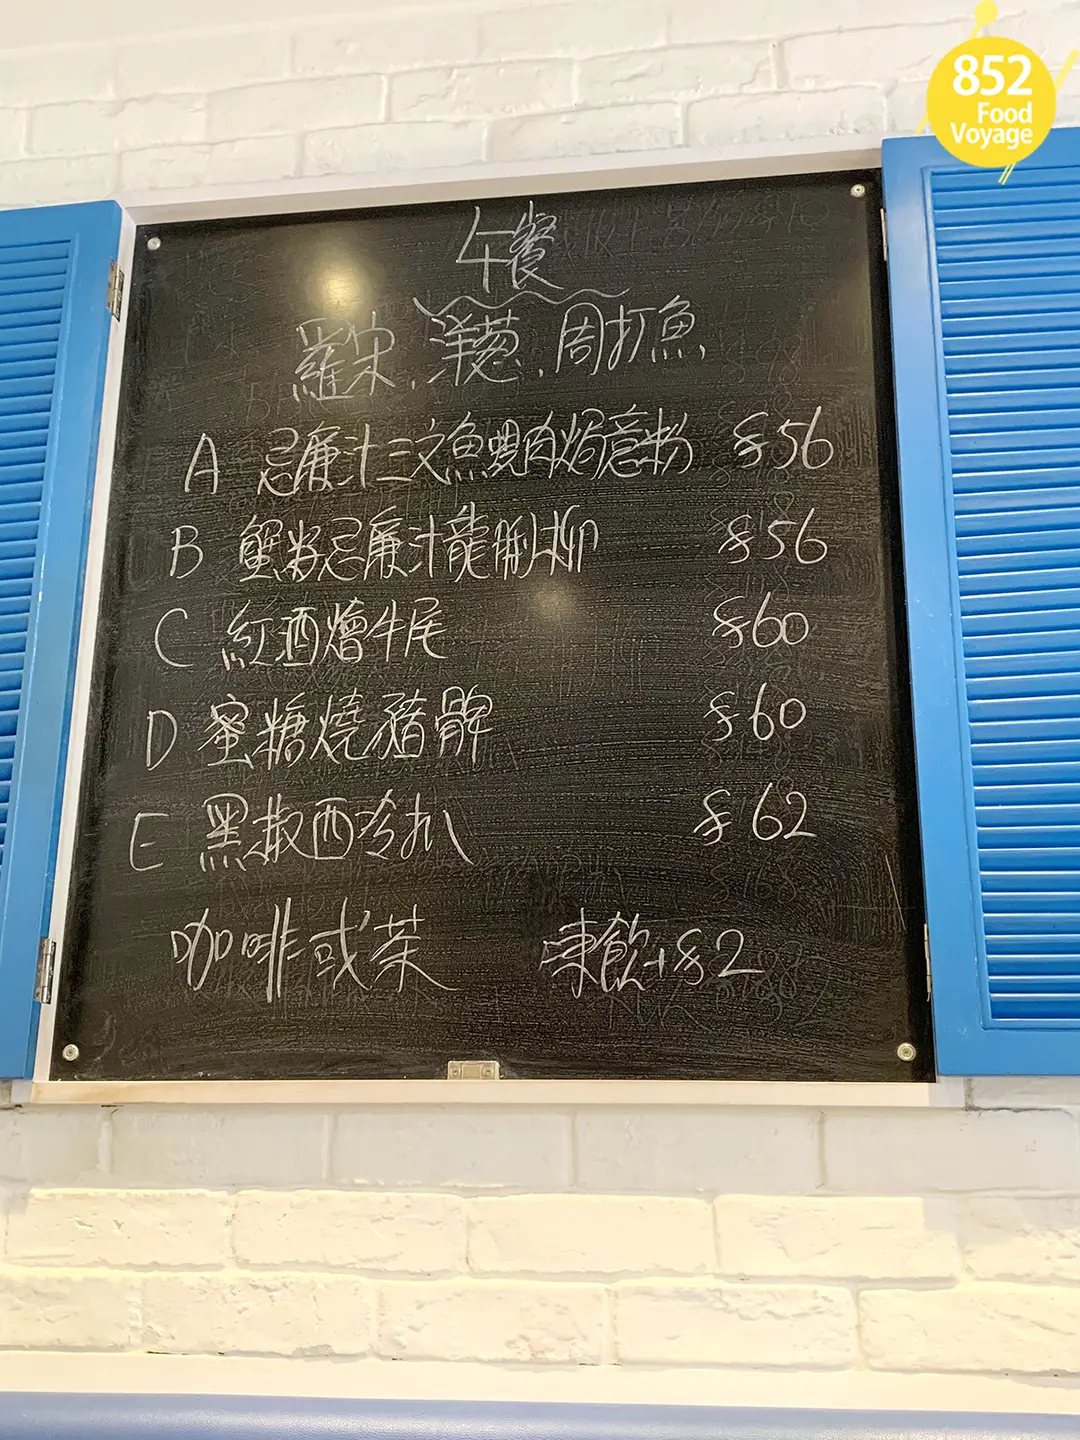 852
Food
Voyage
午餐
羅宋,洋葱,周打魚
A 忌廉汁三文魚蜆肉焗意粉 $56
B 蟹籽忌廉汁龍脷柳 $56
C 紅酒燴牛尾 $60
D 蜜糖燒豬髀 $60
E 黑椒西冷扒 $62
咖啡或茶 凍飲+$2